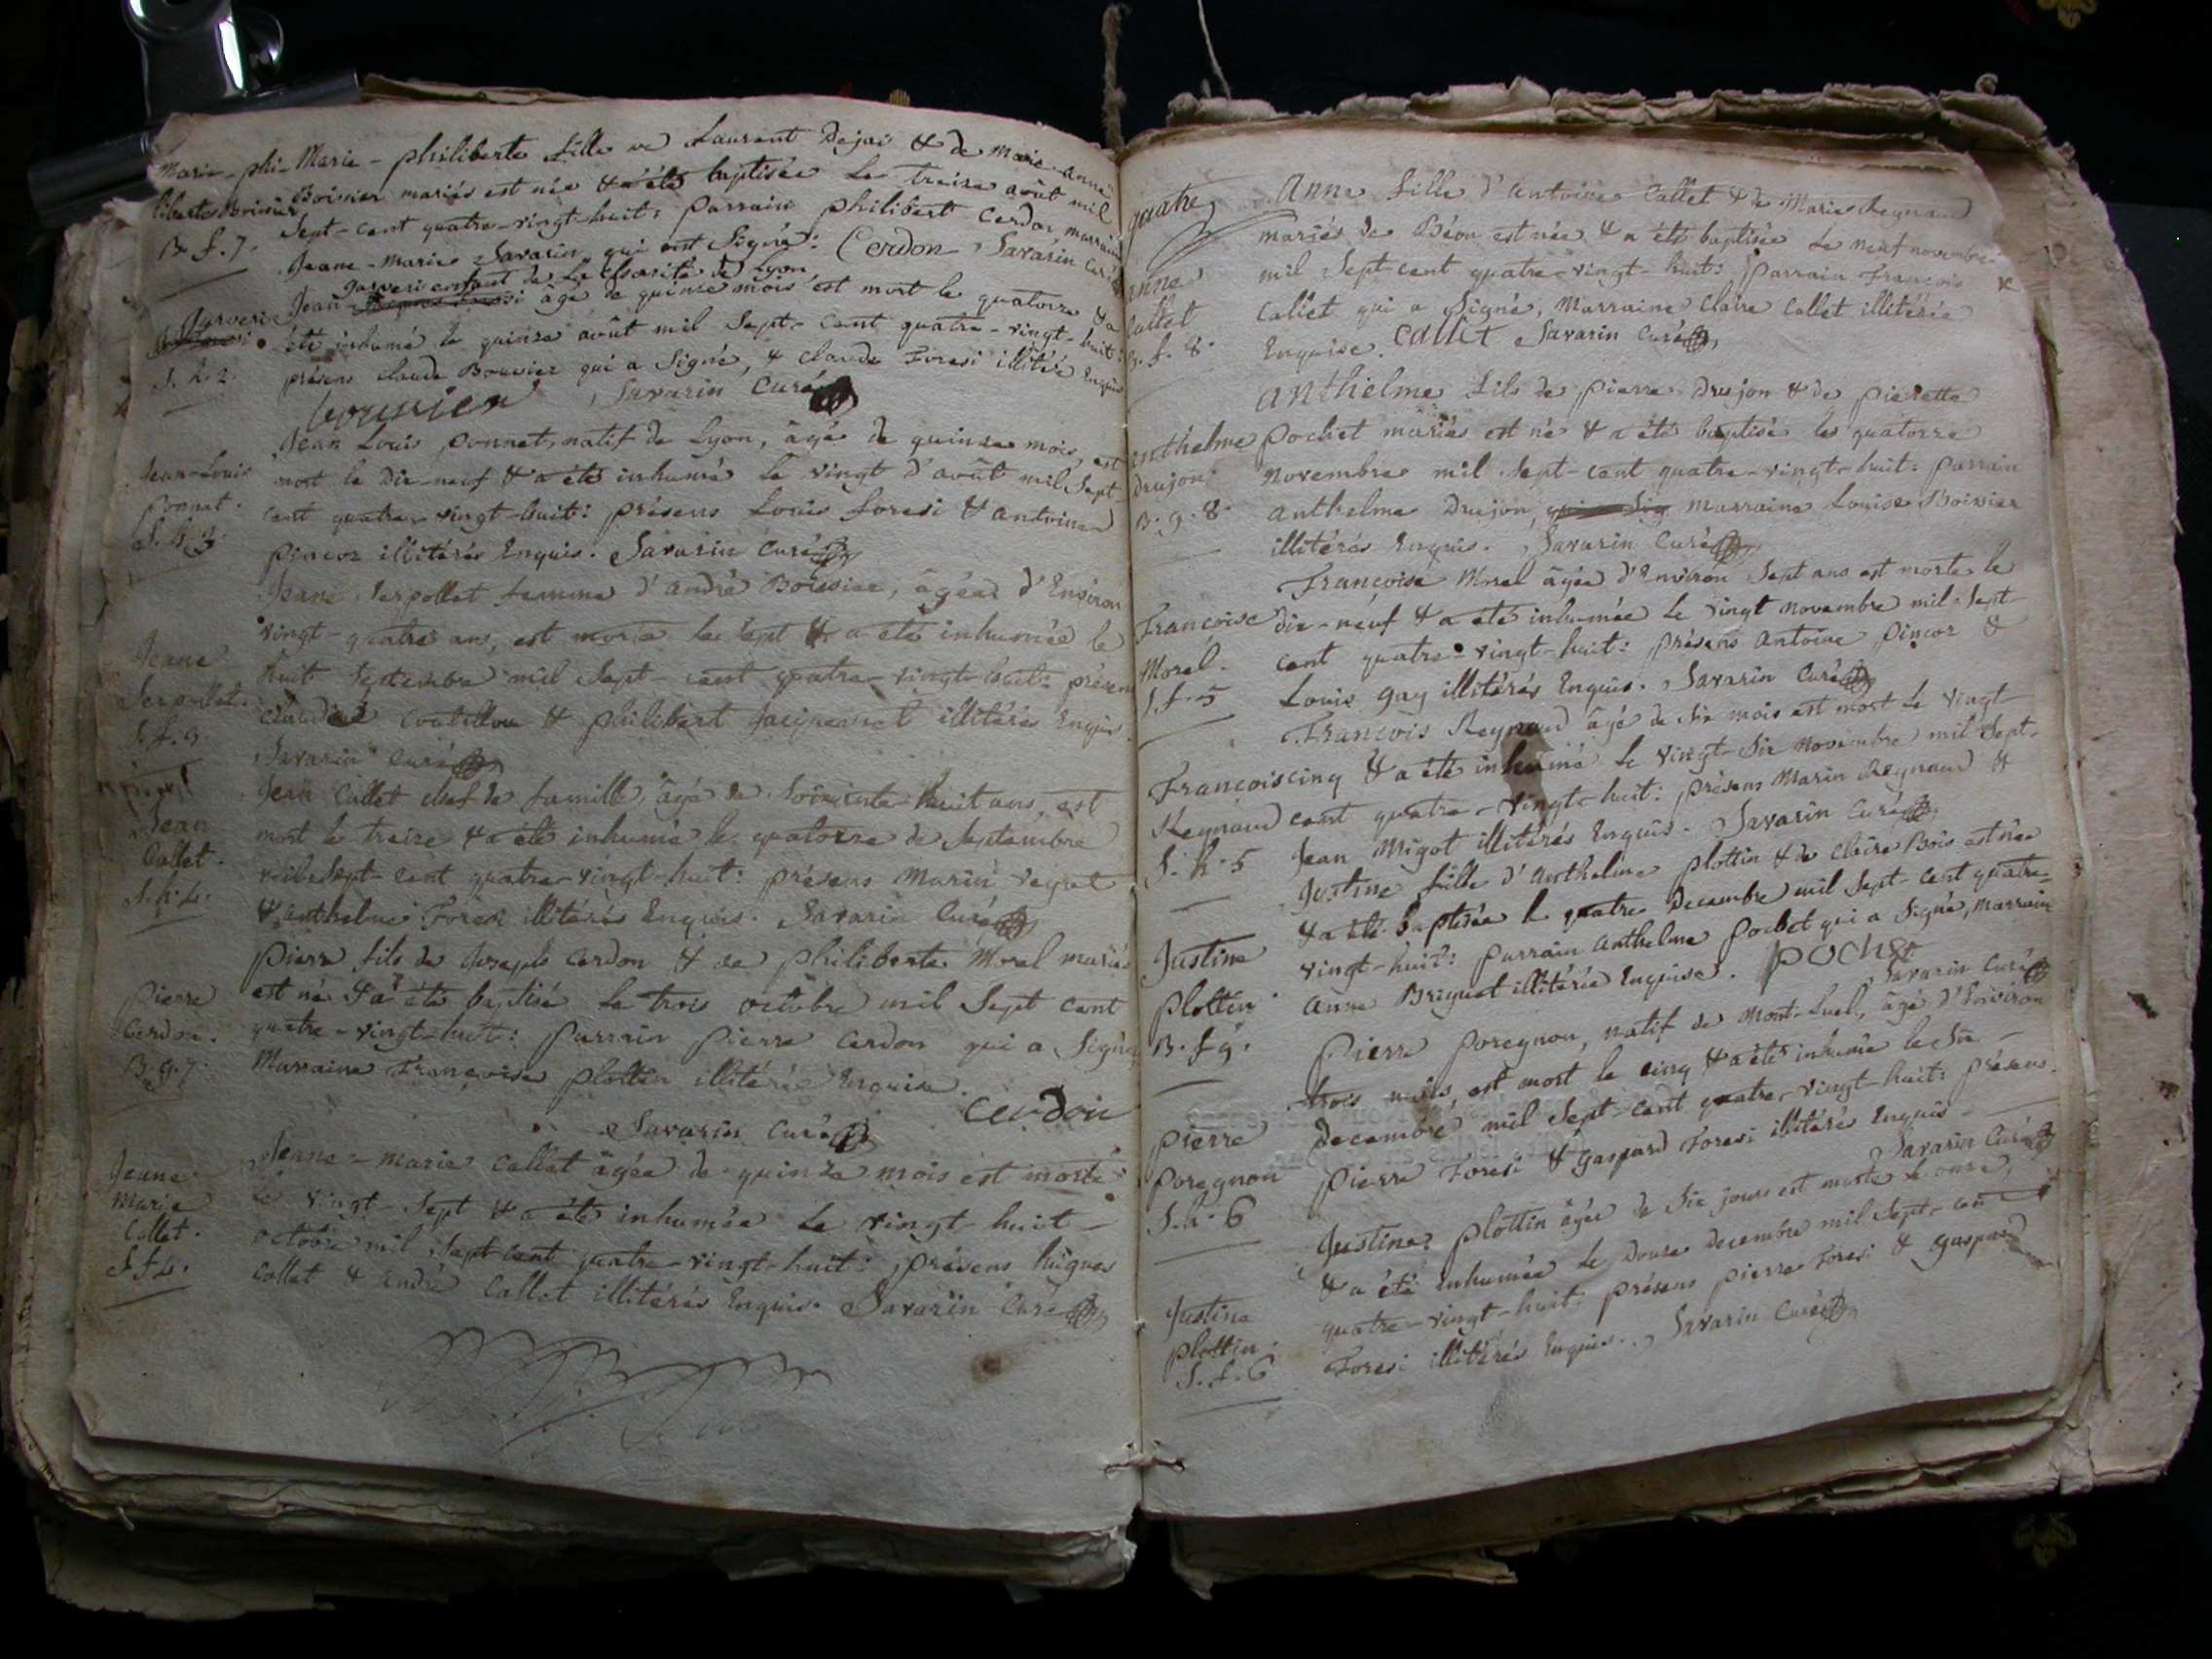 Marie-phi-
liberte Boivier
B. f. 7.
Marie-philiberte fille de Laurent Dejai & de Marie-anne
Boivier mariés est née & a été baptisée le treize août mil
Sept-cent quatre-vingt-huit: parrain philibert Cerdon marraine
Jeane-Marie Savarin qui ont Signé: Cerdon Savarin Curé
garveri enfant de la Charité de Lyon
garveri
S. h. 2.
Jean âgé de quinze mois est mort le quatorze & a
été inhumé le quinze août mil Sept-cent quatre-vingt-huit:
présens claude Bouvier qui a Signé, & claude Foresi illitéré Enquis
bouvier Savarin Curé
Jean-Louis
ponnet.
S. h. 3.
Jean Louis ponnet, natif de Lyon, âgé de quinze mois, est
mort le dix-neuf & a été inhumé le vingt d'août mil Sept
cent quatre-vingt-huit: présens Louis foresi & antoine
pincoz illitérés Enquis. Savarin Curé
Jeane
Serpollet.
S. f. 3.
Jeane Serpollet femme d'andré Boivier, âgée d'Environ
vingt-quatre ans, est morte le sept & a été inhumée le
huit Septembre mil Sept-cent quatre-vingt-huit: présens
claudine & philibert illitérés Enquis.
Savarin Curé
Jean
Callet.
S. h. 4.
Jean Callet chef de famille, âgé de Soixante-huit ans, est
mort le treize & a été inhumé le quatorze de Septembre
mil Sept-cent quatre-vingt-huit: présens Marin Veyret
& anthelme Foresi illitérés Enquis. Savarin Curé
Pierre
Cerdon.
B. g. 7.
Pierre fils de Joseph Cerdon & de philiberte Morel mariés
est né & a été baptisé le trois octobre mil Sept cent
quatre-vingt-huit: parrain Pierre Cerdon qui a Signé,
Marraine Françoise plottin illitérée Enquise.
cerdon
Savarin Curé
Jeane
Marie
Callet.
S. f. 4.
Jeane-marie Callet âgée de quinze mois est morte
le vingt-Sept & a été inhumée le vingt-huit
octobre mil Sept-cent quatre-vingt-huit: présens hugues
Callet & andré Callet illitérés Enquis. Savarin Curé
quatre
anne
Callet
B. f. 8.
Anne fille d'antoine Callet & de Marie Reynaud
mariés de Béon est née & a été baptisée le neuf novembre
mil Sept-cent quatre-vingt-huit: parrain François
Callet qui a Signé, Marraine Claire Callet illitérée
Enquise. Callet Savarin Curé
anthelme
Drujon.
B. g. 8.
anthelme fils de pierre Drujon & de pierette
pochet mariés est né & a été baptisé le quatorze
novembre mil Sept-cent quatre-vingt-huit: parrain
anthelme Drujon, qui a Sig marraine Louise Boivier
illitérés Enquis. Savarin Curé
Françoise
Morel.
S. f. 5
Françoise Morel âgée d'Environ Sept ans est morte le
dix-neuf & a été inhumée le vingt novembre mil-Sept
cent quatre-vingt-huit: présens antoine pincoz &
Louis gay illitérés Enquis. Savarin Curé
François
Reynaud
S. h. 5
François Reynaud âgé de Six mois est mort le vingt-
cinq & a été inhumé le vingt-Six novembre mil Sept-
cent quatre-vingt-huit: présens Marin Reynaud &
Jean Migot illitérés Enquis. Savarin Curé
Justine
plottin
B. f. 9.
Justine fille d'anthelme plottin & de Claire Bois est née
& a été baptisée le quatre Decembre mil Sept-cent quatre-
vingt-huit: parrain anthelme pochet qui a Signé, Marraine
anne Briquet illitérée Enquise. Pochet
Savarin Curé
Pierre
poregnon
S. h. 6
Pierre poregnon, natif de Mont-Luel, âgé d'Environ
trois mois, est mort le cinq & a été inhumé le Six
Decembre mil Sept-cent quatre-vingt-huit: présens
Pierre Foresi & gaspard Foresi illitérés Enquis
Savarin Curé
Justine
plottin.
S. f. 6
Justine plottin âgée de Six jours est morte le onze,
& a été Enhumée le Douze Decembre mil Sept-cent
quatre-vingt-huit: présens pierre Foresi & gaspard
Foresi illitérés Enquis. Savarin Curé